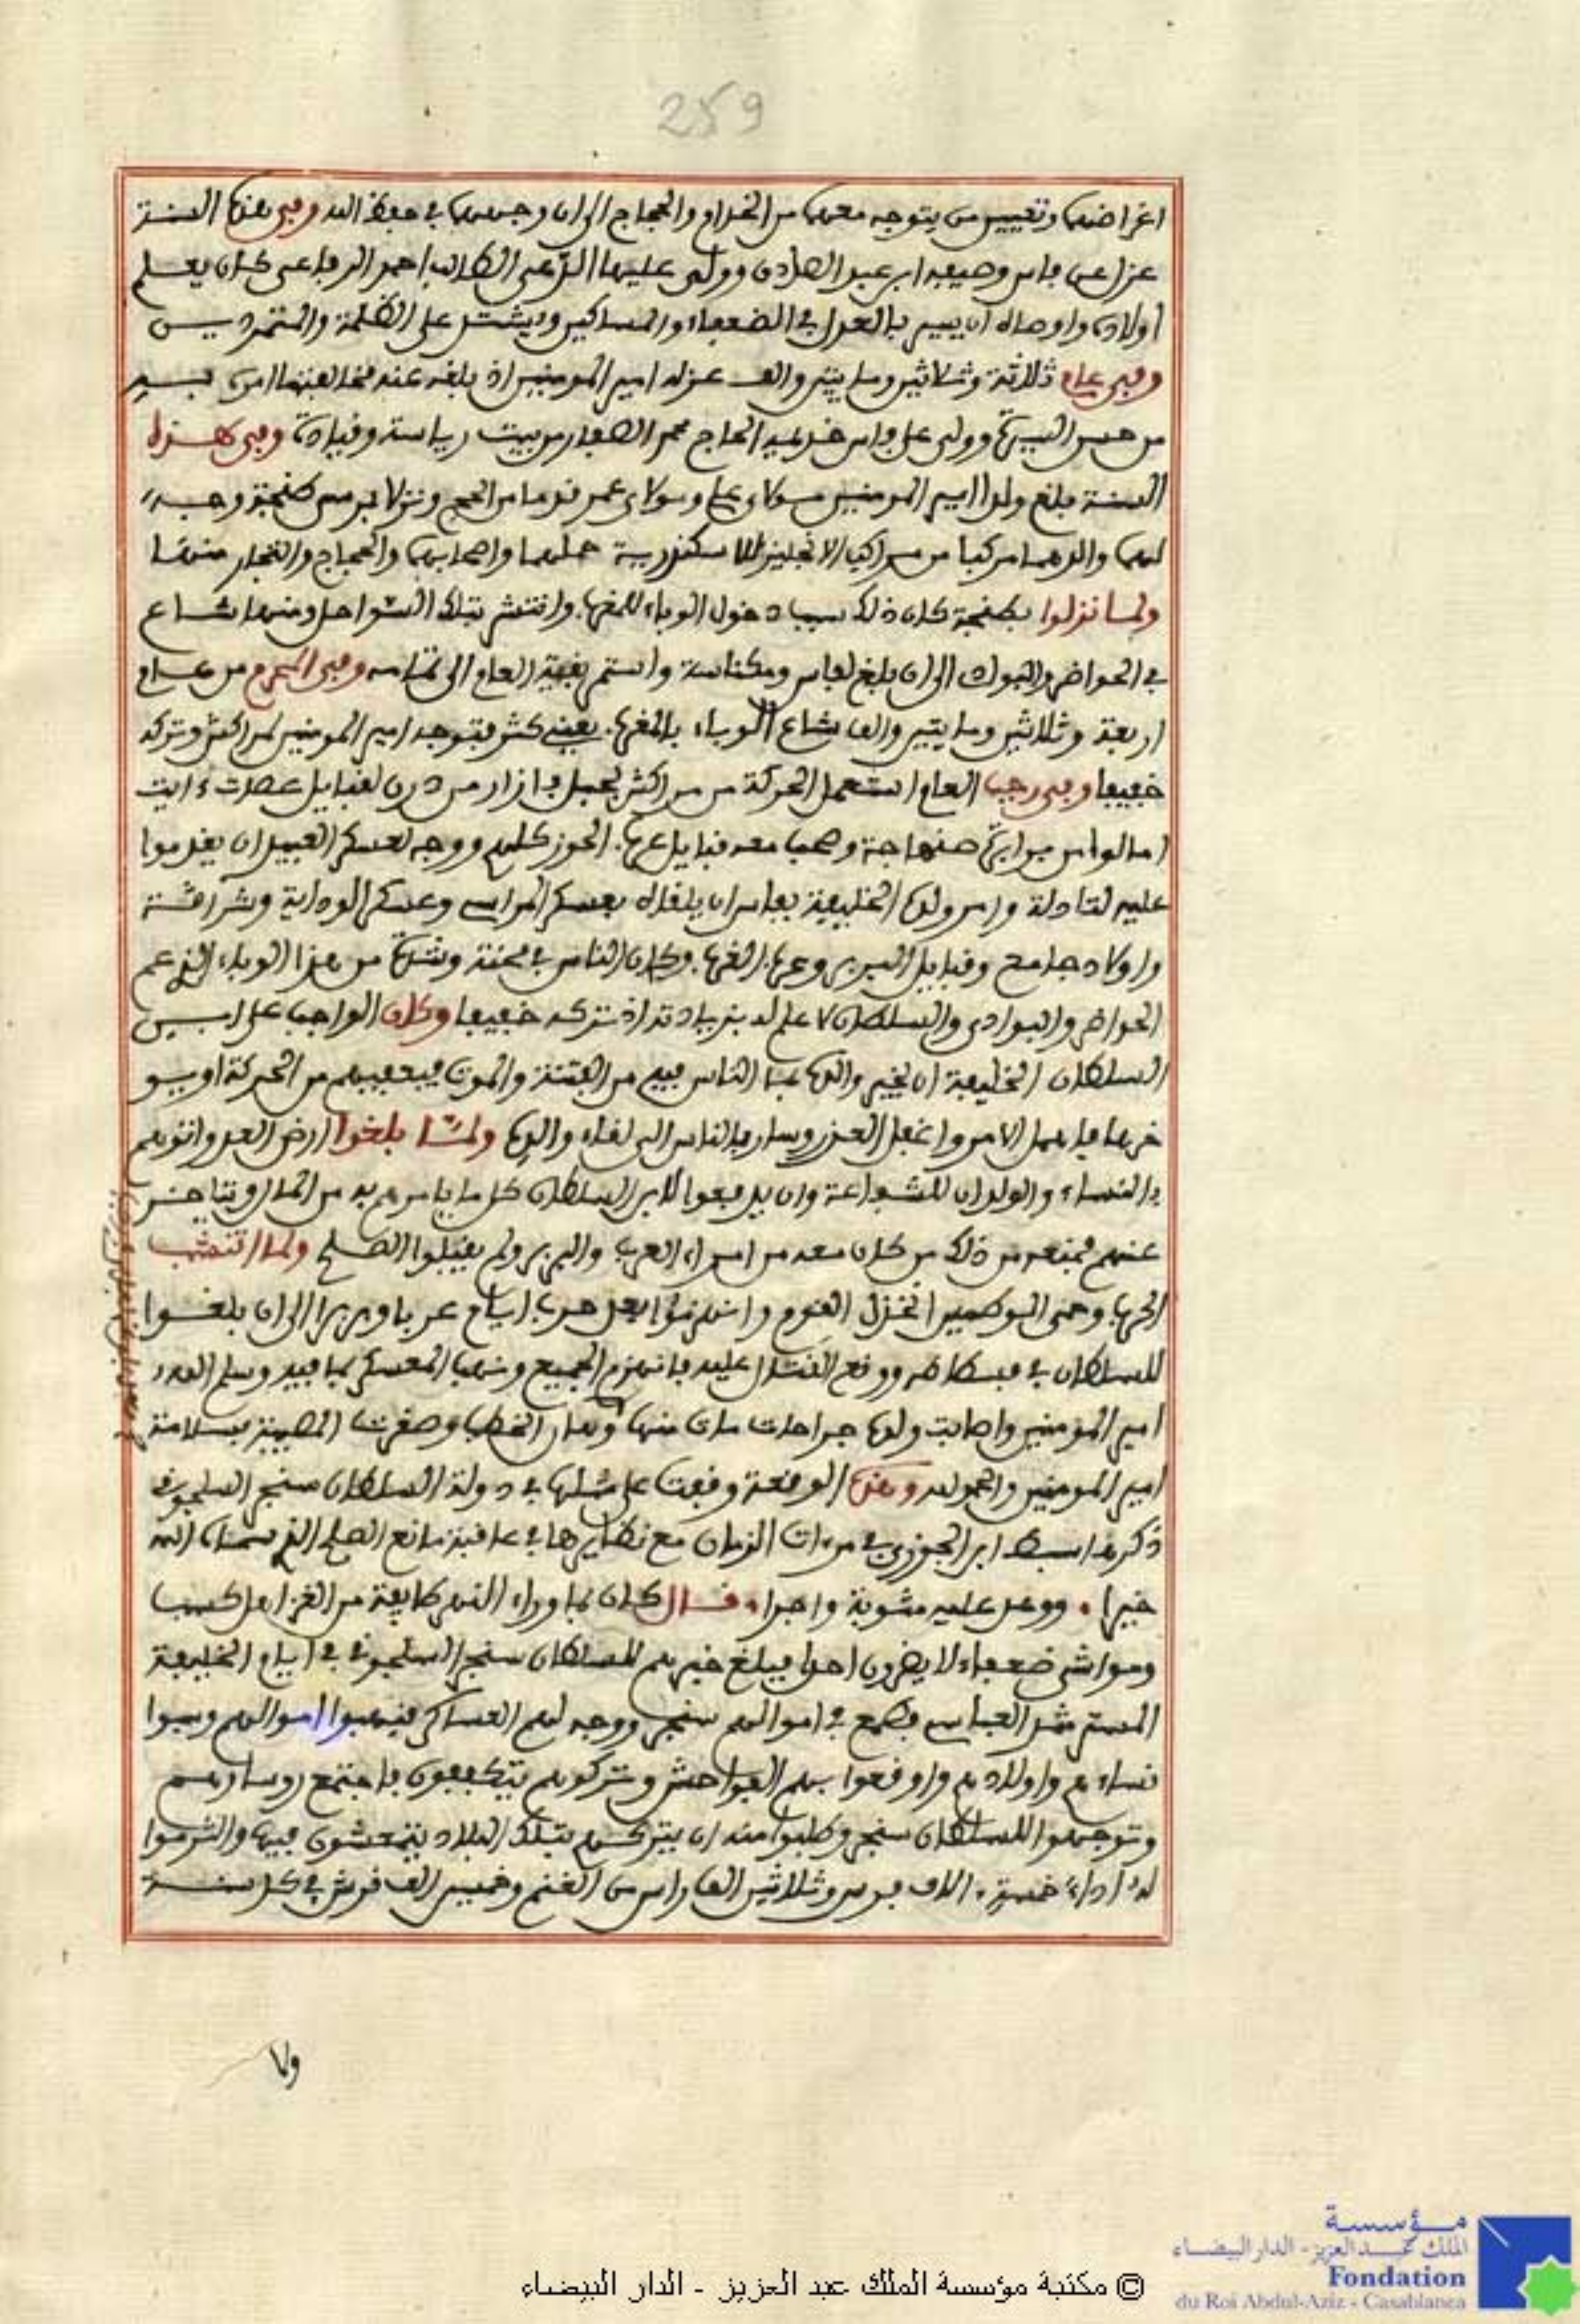 259
اغراضهما وتعيين من يتوجه معهما من الخدام والحجاج الى ان وجههما في حفظ الله وفي هذه السنة
عزل عن فاس وصيفه ابن عبد الصادق وولى عليها الكاتب احمد الرفاعي كان يعلم
اولاده واوصاه ان يسير بالعدل في الضعفاء والمساكين ويشتد على الظلمة والمتمردين
وفي عام ثلاثة وثلاثين ومايتين والف عزله امير المومنين اذ بلغه عنه مخالفته ما امره بسير
من حسن السيرة وولى على فاس خديمه الحاج محمد الصفار من بيت رياسة وقيادة وفي هذه
السنة بلغ ولدا امير المومنين مولاي علي ومولاي عمر قدما من الحج ونزلا بمرسى طنجة وجه
لهما والدهما مركبا من مراكب الانجليز للاسكندرية حملهما واصحابهما والحجاج والتجار منها
ولما نزلوا بطنجة كان ذلك سبب دخول الوباء للمغرب وانتشر بتلك السواحل ومنها شاع
في الحواضر والبوادي الى ان بلغ لفاس ومكناسة واستمر بقية العام الى تمامه وفي المحرم من عام
اربعة وثلاثين ومايتين والف شاع الوباء بالمغرب يعني كثر فتوجه امير المومنين لمراكش وتركه
خفيفا وفي رجب العام استعمل الحركة من مراكش لجبل فازاز من درن لقبايل عصت ايت
امالو من برابرة صنهاجة وصحب معه قبايل عرب الحوز كلهم ووجه لعسكر العبيد ان يقدموا
عليه لتادلة وامر ولده الخليفة بفاس ان يلقاه بعسكر المراسي وعسكر الوداية وشراقة
واولاد جامع وقبايل البربر وعرب الغرب وكان الناس في محنة وشدة من هذا الوباء الذي عم
الحواضر والبوادي والسلطان لا علم له بزيادته اذ تركه خفيفا وكان الواجب على ابن
السلطان الخليفة ان يخبر والده بما الناس فيه من الفتنة والموت فيعفيهم من الحركة او يو
خرها فاهمل الامر واغفل العذر وسار بالناس الى لقاء والده ولما بلغوا ارض العدو اتوهم
بالنساء والولدان للشفاعة وان يدفعوا لابن السلطان كل ما يامرهم به من المال ويتاخر
عنهم فمنعه من ذلك من كان معه من امراء العرب والبربر ولم يقبلوا الصلح ولما انتشب
الحرب وحمى الوطيس انخزل القوم وانهزموا بعد حرب ايام عربا وبربرا الى ان بلغوا
للسلطان في فسطاطه ووقع القتال عليه فانهزم الجميع ونهب المعسكر بما فيه وسلم الله
امير المؤمنين واصابت ولده جراحات مات منها وهان الخطب وصغرت المصيبة بسلامة
امير المومنين والحمد لله وهذه الوقعة وقعت على مثلها في دولة السلطان سنجر السلجوقي
ذكرها سبط ابن الجوزي في مرءات الزمان مع نظايرها في عاقبة مانع الصلح الذي سماه الله
خيرا ووعد عليه مثوبة واجرا قال كان بما وراء النهر طايفة من الغز اهل كسب
ومواشي ضعفاء لا يضرون احدا فبلغ خبرهم للسلطان سنجر السلجوقي في ايام الخليفة
المسترشد العباسي فطمع في اموالهم سنجر ووجه لهم العساكر فنهبوا اموالهم وسبوا
نساءهم واولادهم واوقعوا بهم الفواحش وتركوهم يتكففون فاجتمع روساءهم
وتوجهوا للسلطان سنجر وطلبوا منه ان يتركهم بتلك البلاد يتمعشون فيها والتزموا
له اداء خمسة ءالاف فرس وثلاثين الف راس من الغنم وخمسين الف قرش في كل سنة
ولما
مؤسسة
الملك عبد العزيز - الدار البيضاء
Fondation
du Roi Abdul-Aziz - Casablanca
© مكتبة مؤسسة الملك عبد العزيز - الدار البيضاء